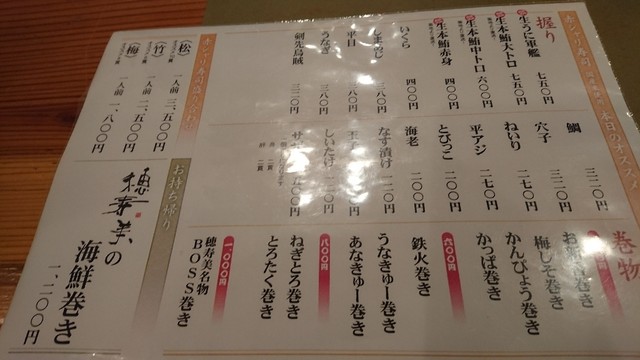 握り
生うに軍艦 七五〇円
生本鮪大トロ 七五〇円
生本鮪中トロ 六〇〇円
生本鮪赤身 四〇〇円
いくら 四〇〇円
しまあじ 三八〇円
平目 三八〇円
うなぎ 三八〇円
剣先烏賊 三三〇円
鯛 三二〇円
穴子 三二〇円
ねいり 二七〇円
平アジ 二七〇円
とびっこ 二〇〇円
海老 二〇〇円
なす漬け 一二〇円
しいたけ 一二〇円
巻物
お新香巻き
梅しそ巻き
かんぴょう巻き
かっぱ巻き
六〇〇円
鉄火巻き
八〇〇円
うなきゅー巻き
あなきゅー巻き
一、〇〇〇円
ねぎとろ巻き
とろたく巻き
穂寿美名物
BOSS巻き
(松) 一人前 三、五〇〇円
(竹) 一人前 二、五〇〇円
(梅) 一人前 一、八〇〇円
お持ち帰り
穂寿美の
海鮮巻き
一、二〇〇円